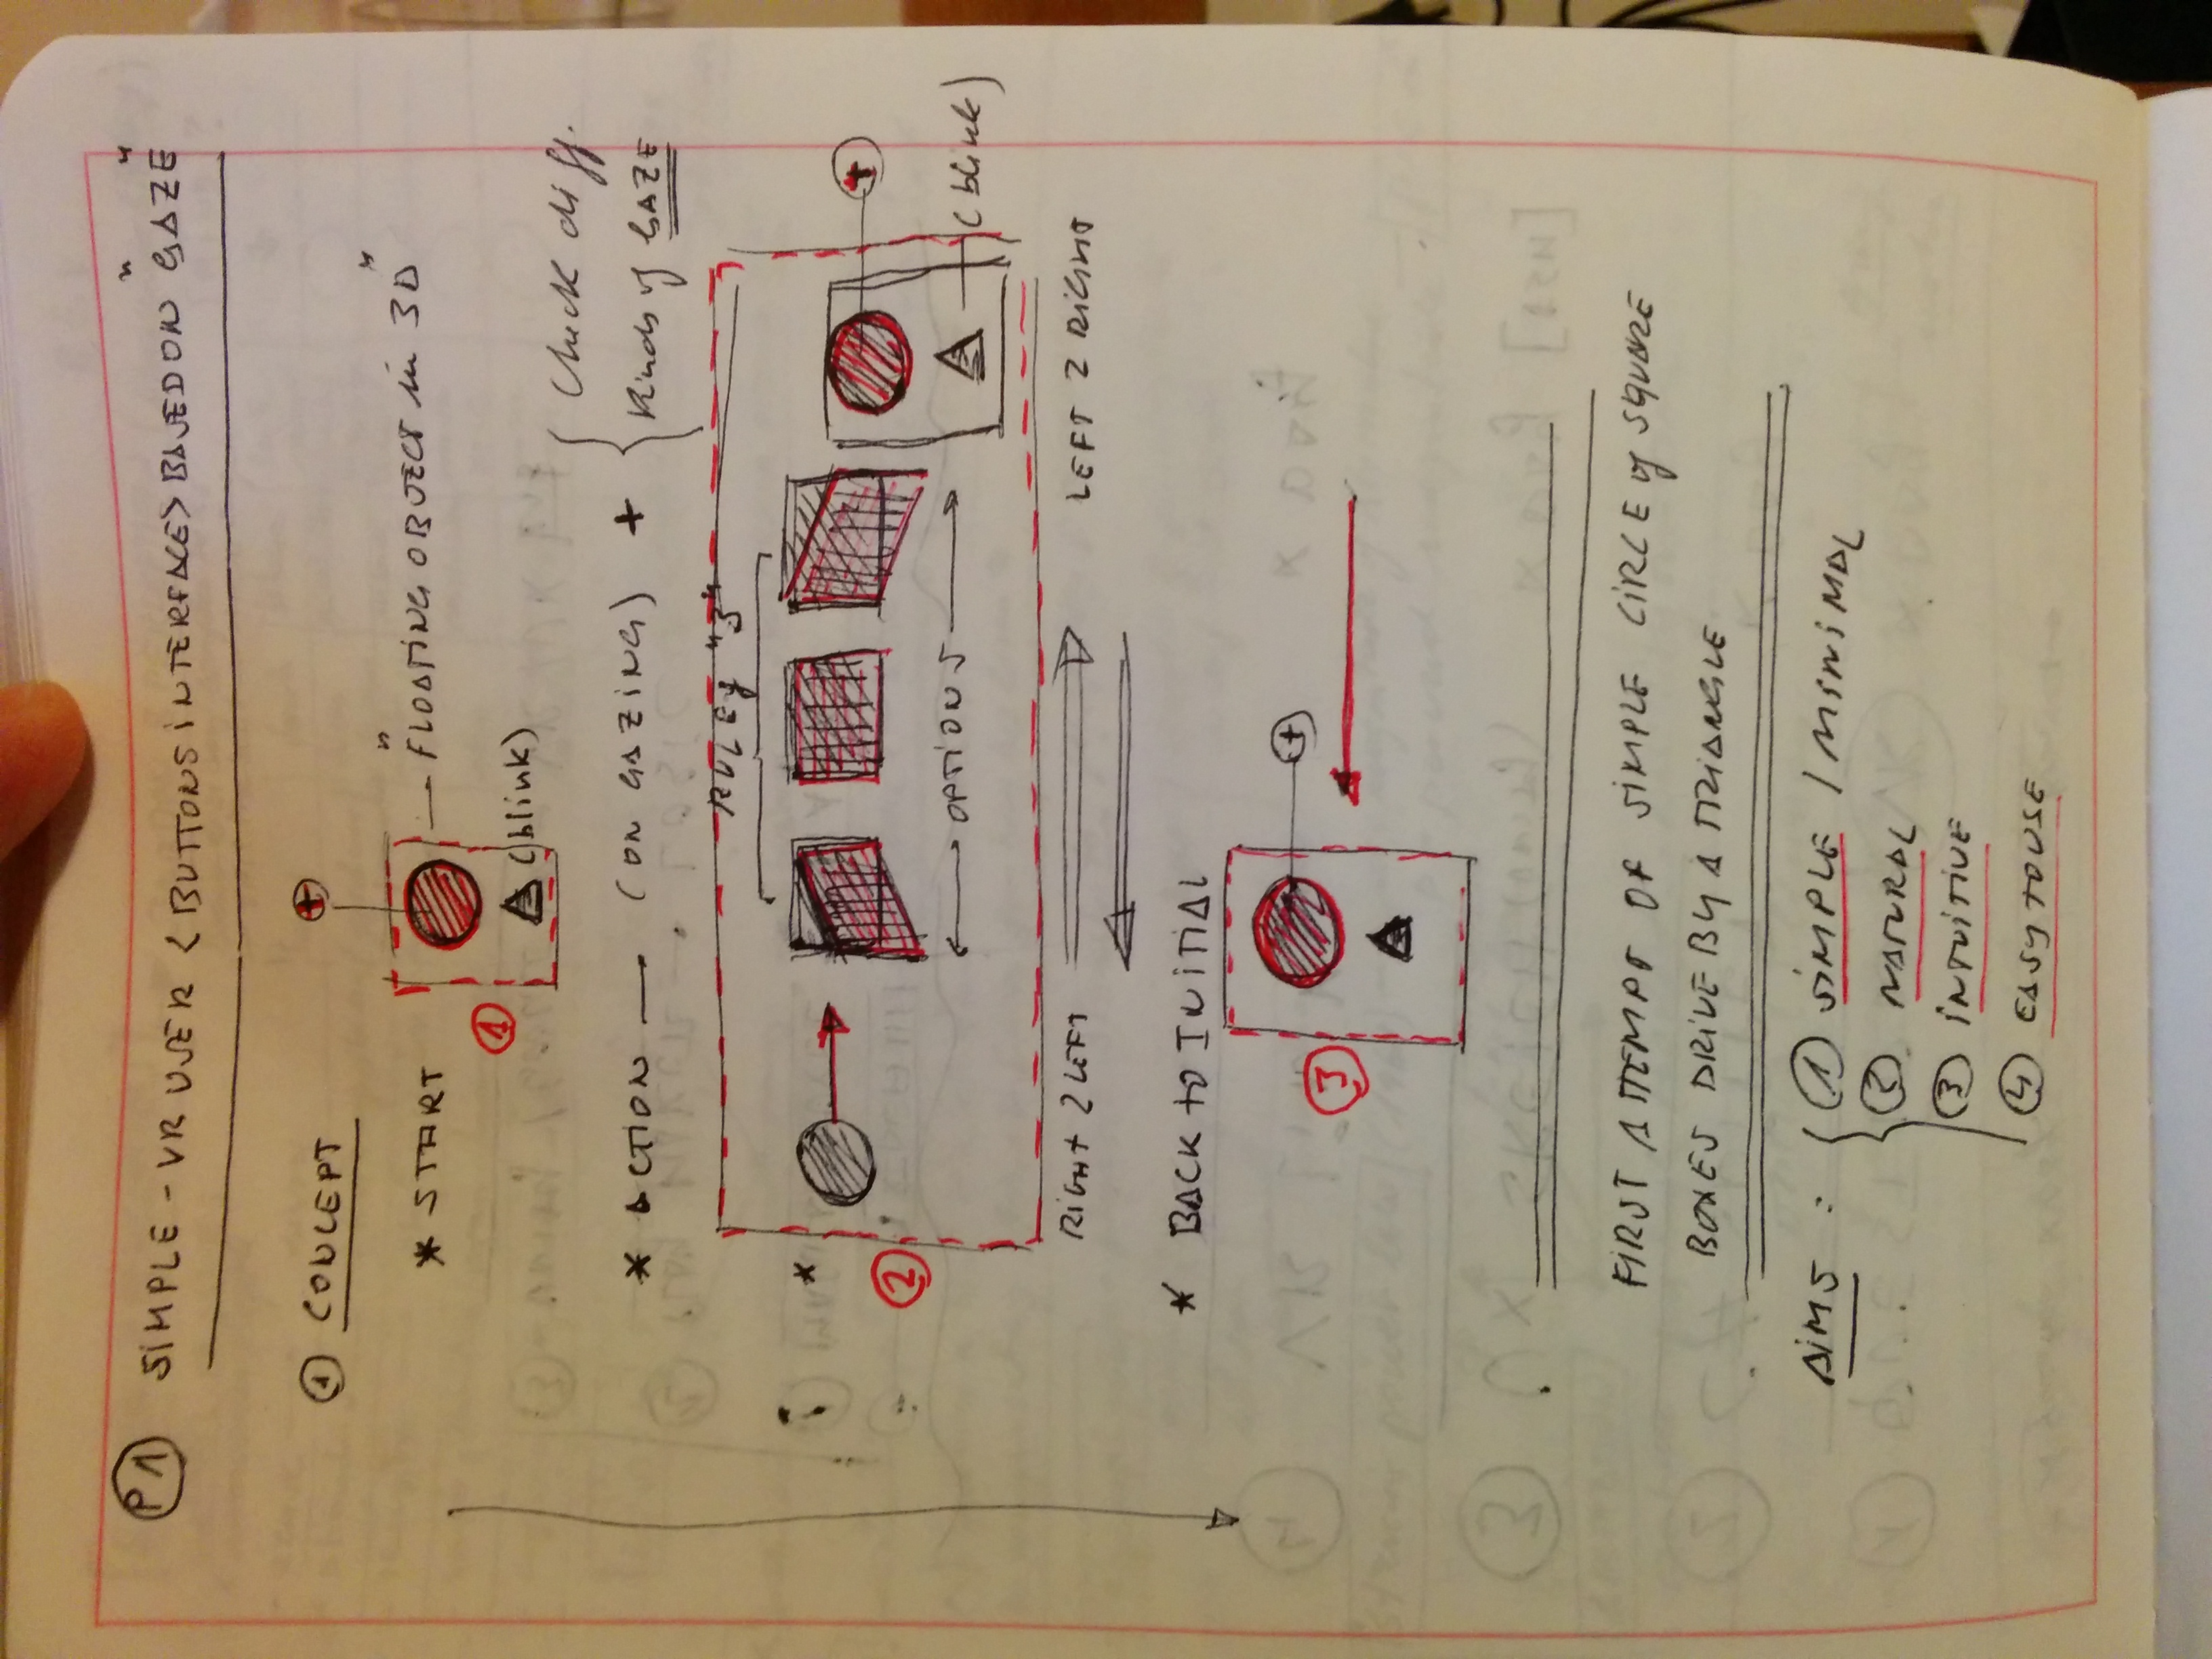 P1 SIMPLE-VR USER <BUTTONS INTERFACE> BASED ON "GAZE"
① CONCEPT
+
* START
"FLOATING OBJECT in 3D"
(blink)
①
* ACTION — (ON GAZING) + { Check diff.
kinds of GAZE
RULE of "3"
*
+
②
← OPTIONS →
(blink)
RIGHT 2 LEFT LEFT 2 RIGHT
* BACK to INITIAL
+
③
FIRST ATTEMPT OF SIMPLE CIRCLE of SQUARE
BOXES DRIVE BY A TRIANGLE
AIMS : ① SIMPLE / MINIMAL
② NATURAL
③ INTUITIVE
④ EASY TO USE